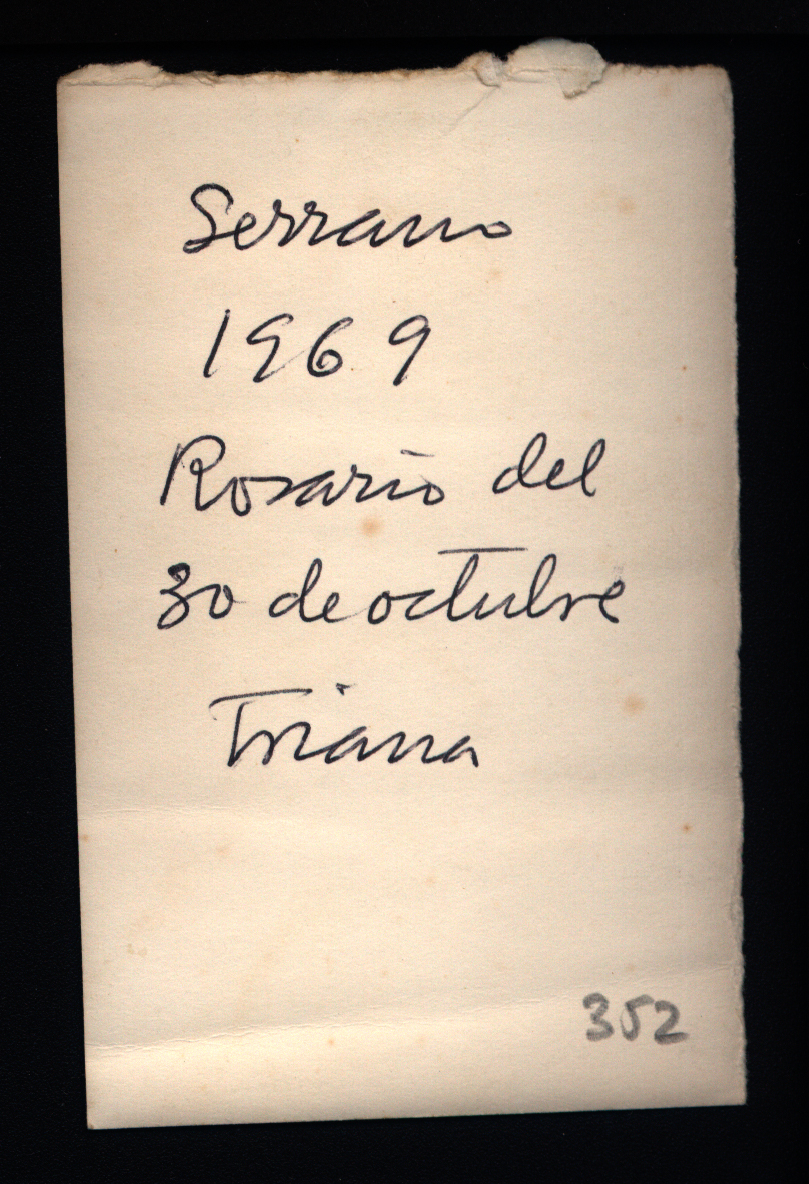 Serrano
1969
Rosario del
30 de octubre
Triana
352